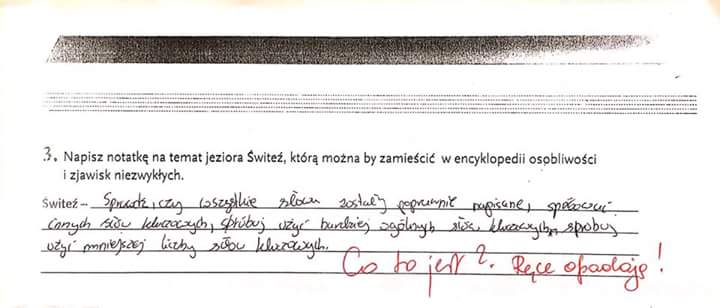 3. Napisz notatkę na temat jeziora Świteź, którą można by zamieścić w encyklopedii osobliwości
i zjawisk niezwykłych.
Świteź – Sprawdź, czy wszystkie słowa zostały poprawnie napisane, spróbować
innych słów kluczowych, spróbuj użyć bardziej ogólnych słów kluczowych, spróbuj
użyć mniejszej liczby słów kluczowych.
Co to jest?. Ręce opadają!